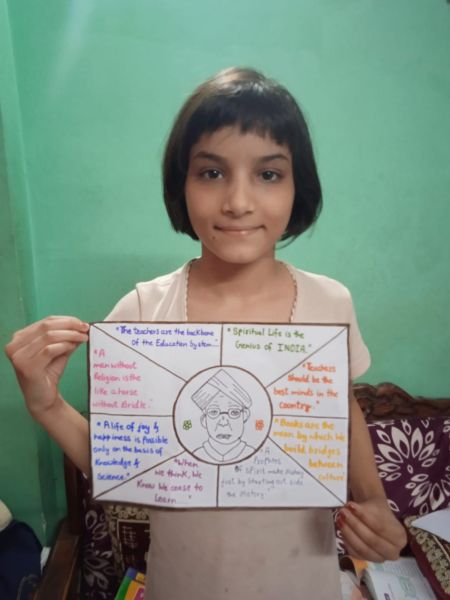 "The teachers are the backbone
Of the Education System..."
"Spiritual Life is the
Genius of INDIA."
"Teachers
Should be the
best minds in the
Country."
"Books are the
mean by which we
build bridges
between
culture"
"A
Prophets
Of Spirit make history
just by
out side
the History."
"When
we think, we
Know We cease to
Learn...."
"A life of joy &
happiness is possible
only on the basis of
Knowledge &
Science."
"A
man without
Religion is the
like a horse
without Bridle."